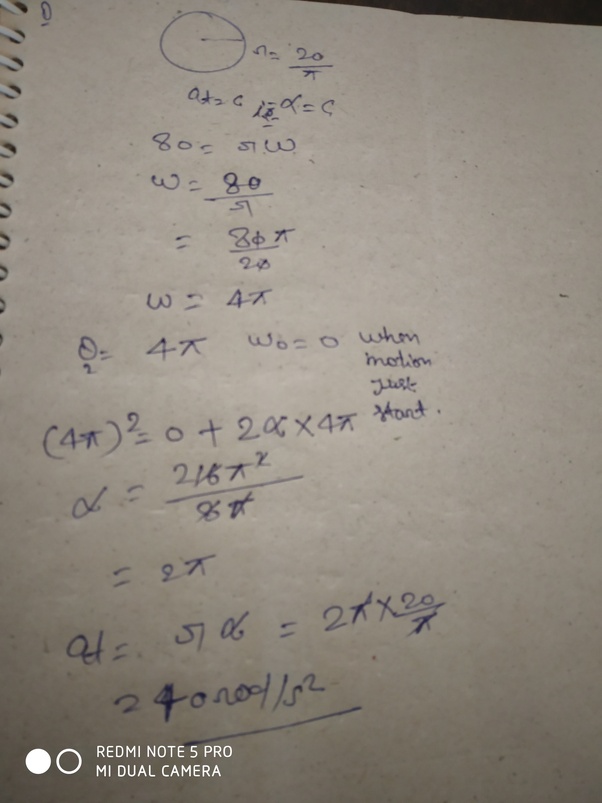 1)
r = 20/π
at = c α = c
80 = rω
ω = 80/r
= 80π/20
ω = 4π
θ2 = 4π ω0 = 0 when
motion
just
start.
(4π)² = 0 + 2α × 4π
α = 16π²/8π
= 2π
at = rα = 2π × 20/π
= 40 rad/s²
REDMI NOTE 5 PRO
MI DUAL CAMERA